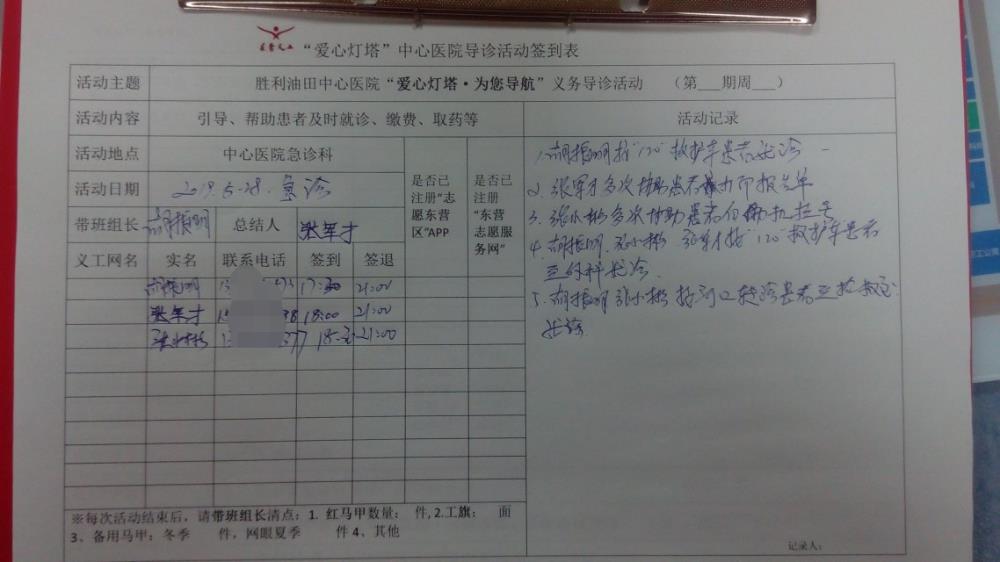 “爱心灯塔”中心医院导诊活动签到表
活动主题 胜利油田中心医院“爱心灯塔·为您导航”义务导诊活动 （第___期周___）
活动内容 引导、帮助患者及时就诊、缴费、取药等 活动记录
活动地点 中心医院急诊科 是否已注册“志愿东营区”APP 是否已注册“东营志愿服务网”
活动日期 2019.5-28. 急诊
带班组长 胡振明 总结人 张军才
义工网名 实名 联系电话 签到 签退
胡振明 17:30 21:00
张军才 18:00 21:00
张小彬 21:00
1. 胡振明 接“120”救护车患者就诊
2. 张军才多次协助患者 打印报告单
3. 张小彬多次协助患者 挂号
4. 胡振明. 张小彬 张军才接“120”救护车患者
就诊.
5. 胡振明 张小彬 接河口转诊患者至抢救室
就诊
※每次活动结束后，请带班组长清点：1. 红马甲数量： 件, 2.工旗： 面
3、备用马甲：冬季 件，网眼夏季 件 4、其他
记录人：